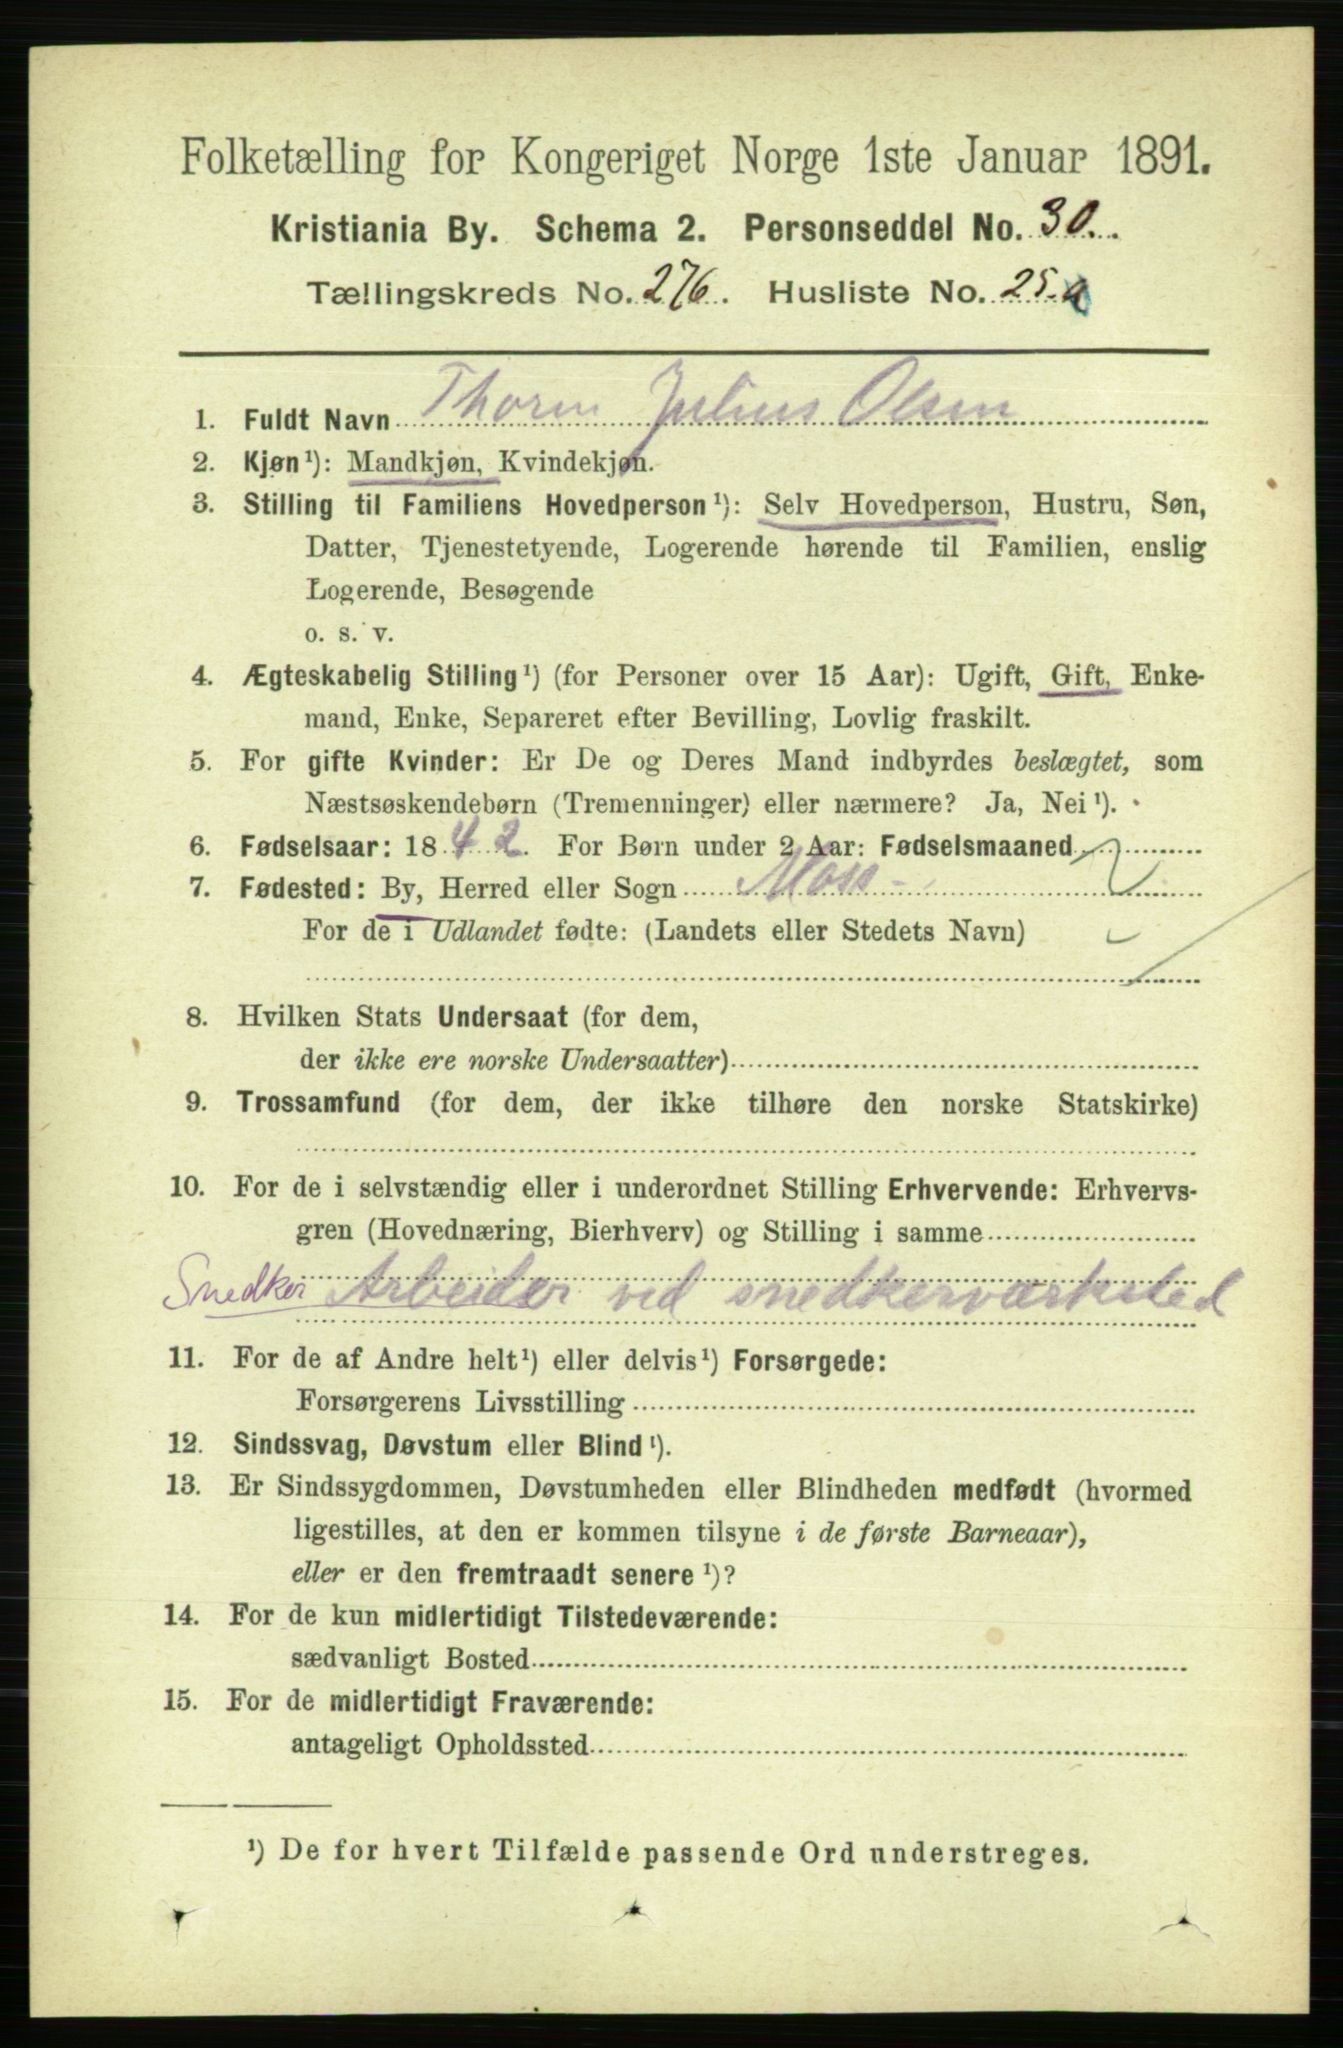 Folketælling for Kongeriget Norge 1ste Januar 1891.
Kristiania By. Schema 2. Personseddel No. 30.
Tællingskreds No. 276. Husliste No. 25.a
1. Fuldt Navn Julius Olsen
2. Kjøn ¹): Mandkjøn, Kvindekjøn.
3. Stilling til Familiens Hovedperson ¹): Selv Hovedperson, Hustru, Søn,
Datter, Tjenestetyende, Logerende hørende til Familien, enslig
Logerende, Besøgende
o. s. v.
4. Ægteskabelig Stilling ¹) (for Personer over 15 Aar): Ugift, Gift, Enke-
mand, Enke, Separeret efter Bevilling, Lovlig fraskilt.
5. For gifte Kvinder: Er De og Deres Mand indbyrdes beslægtet, som
Næstsøskendebørn (Tremenninger) eller nærmere? Ja, Nei ¹).
6. Fødselsaar: 1842. For Børn under 2 Aar: Fødselsmaaned
7. Fødested: By, Herred eller Sogn Moss
For de i Udlandet fødte: (Landets eller Stedets Navn)
8. Hvilken Stats Undersaat (for dem,
der ikke ere norske Undersaatter)
9. Trossamfund (for dem, der ikke tilhøre den norske Statskirke)
10. For de i selvstændig eller i underordnet Stilling Erhvervende: Erhvervs-
gren (Hovednæring, Bierhverv) og Stilling i samme
Snedker Arbeider ved snedkerværksted
11. For de af Andre helt ¹) eller delvis ¹) Forsørgede:
Forsørgerens Livsstilling
12. Sindssvag, Døvstum eller Blind ¹).
13. Er Sindssygdommen, Døvstumheden eller Blindheden medfødt (hvormed
ligestilles, at den er kommen tilsyne i de første Barneaar),
eller er den fremtraadt senere ¹)?
14. For de kun midlertidigt Tilstedeværende:
sædvanligt Bosted
15. For de midlertidigt Fraværende:
antageligt Opholdssted
¹) De for hvert Tilfælde passende Ord understreges.